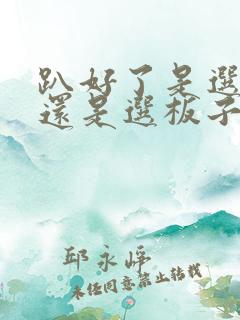 趴好了是選
還是選板子
邱永崢
未經同意禁止轉載